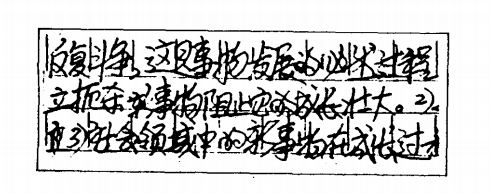 反复斗争,这是事物发展的必然过程
立扼杀新事物阻止它的成长壮大。2).
市3)社会领域中的新事物在成长过